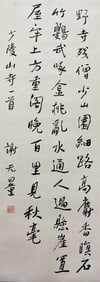 野寺殘僧少山園細路高麝香眠石
竹鸚鵡啄金桃亂水通人過懸崖置
屋牢上方重閣晚百里見秋毫
少陵山寺一首 謝无量